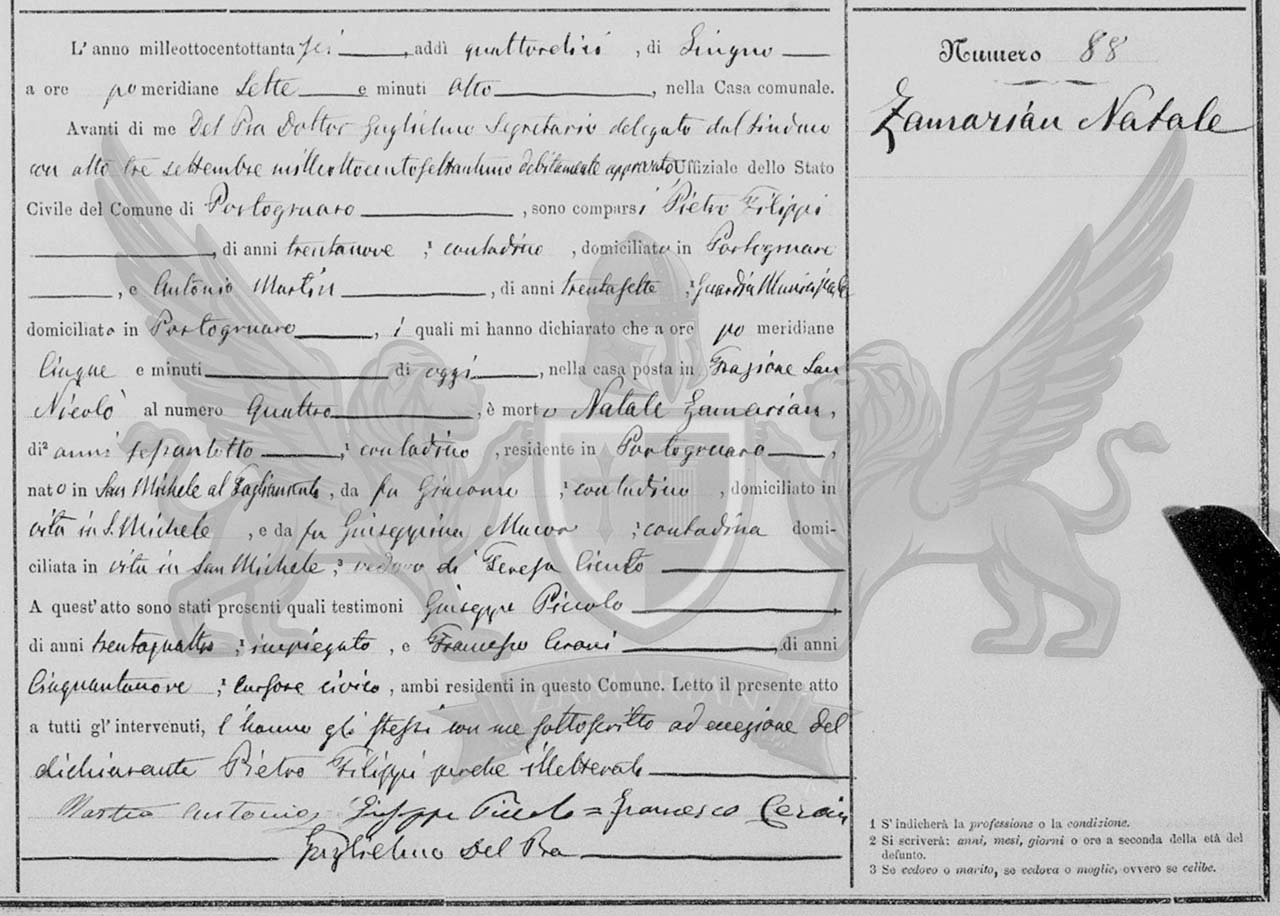 L'anno milleottocentottanta sei, addì quattordici, di Giugno
a ore pomeridiane Sette e minuti Otto, nella Casa comunale.
Avanti di me Del Pra Dottor Guglielmo Segretario delegato dal Sindaco
con atto tre settembre milleottocentosettantuno debitamente approvato Uffiziale dello Stato
Civile del Comune di Portogruaro, sono comparsi Pietro Filippi
, di anni trentanove, contadino, domiciliato in Portogruaro
, e Antonio Martin, di anni trentasette, Guardia Municipale
domiciliato in Portogruaro, i quali mi hanno dichiarato che a ore pomeridiane
Cinque e minuti di oggi, nella casa posta in Frazione San
Nicolò al numero Quattro, è morto Natale Zamarian,
di² anni sessantotto, contadino, residente in Portogruaro,
nato in San Michele al Tagliamento, da fu Giacomo, contadino, domiciliato in
vita in S. Michele, e da fu Giuseppina Macor, contadina domi-
ciliata in vita in San Michele, ³ vedovo di Teresa
A quest'atto sono stati presenti quali testimoni Giuseppe Piccolo
di anni trentaquattro, ¹ impiegato, e Francesco Cerani di anni
Cinquantanove, ¹ Cursore civico, ambi residenti in questo Comune. Letto il presente atto
a tutti gl'intervenuti, l'hanno gli stessi con me sottoscritto ad eccezione del
dichiarante Pietro Filippi perche illetterato
Antonio Giuseppe Piccolo = Francesco
Guglielmo Del Pra
Numero 88
Zamarian Natale
1 S'indicherà la professione o la condizione.
2 Si scriverà: anni, mesi, giorni o ore a seconda della età del
defunto.
3 Se vedovo o marito, se vedova o moglie, ovvero se celibe.
ZAMARIAN